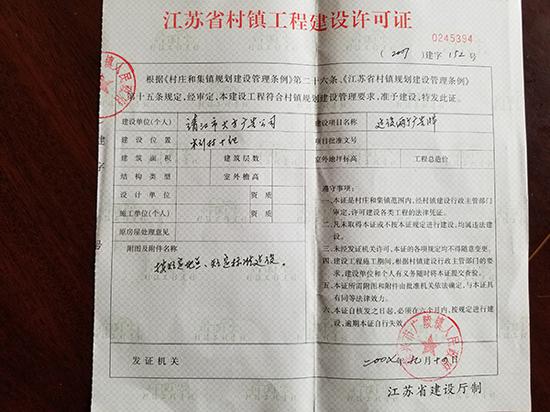 江苏省村镇工程建设许可证
0245394
(2007) 建字 152 号
根据《村庄和集镇规划建设管理条例》第二十六条、《江苏省村镇规划建设管理条例》
第十五条规定,经审定,本建设工程符合村镇规划建设管理要求,准予建设,特发此证。
建设单位(个人)
靖江市大方广告公司
建设项目名称
建设两广告牌
建设位置
项目批准文号
建筑面积
建筑层数
室外地坪标高
工程总造价
结构类型
室外檐高
设计单位
资质
施工单位(个人)
资质
原房屋处理意见
附图及附件名称
遵守事项:
一、本证是村庄和集镇范围内,经村镇建设行政主管部门
审定,许可建设各类工程的法律凭证。
二、凡未取得本证或不按本证规定进行建设,均属违法建
设。
三、未经发证机关许可,本证的各项规定均不得随意变更。
四、建设工程施工期间,根据村镇建设行政主管部门的要
求,建设单位和个人有义务随时将本证提交查验。
五、本证所需附图和附件由批准机关依法确定,与本证具
有同等法律效力。
六、本证自核发之日起,必须在六个月内,按规定进行建
设,逾期本证自行失效。
发证机关
江苏省建设厅制
建字
号